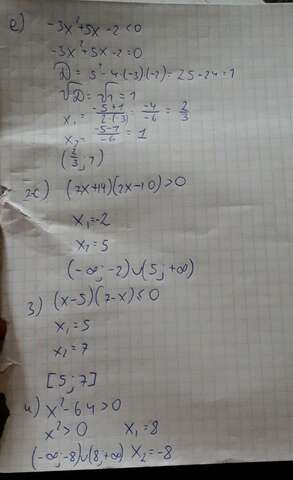 е) -3x²+5x-2<0
-3x²+5x-2=0
D = 5²-4·(-3)·(-2)=25-24=1
√D=√1=1
x₁ = (-5+1)/(2·(-3)) = -4/-6 = 2/3
x₂ = (-5-1)/-6 = 1
(2/3; 1)
ж) (7x+14)(2x-10)>0
x₁=-2
x₂=5
(-∞;-2)∪(5;+∞)
з) (x-5)(7-x)≤0
x₁=5
x₂=7
[5;7]
и) x²-64>0
x²>0 x₁=8
(-∞;-8)∪(8;+∞) x₂=-8